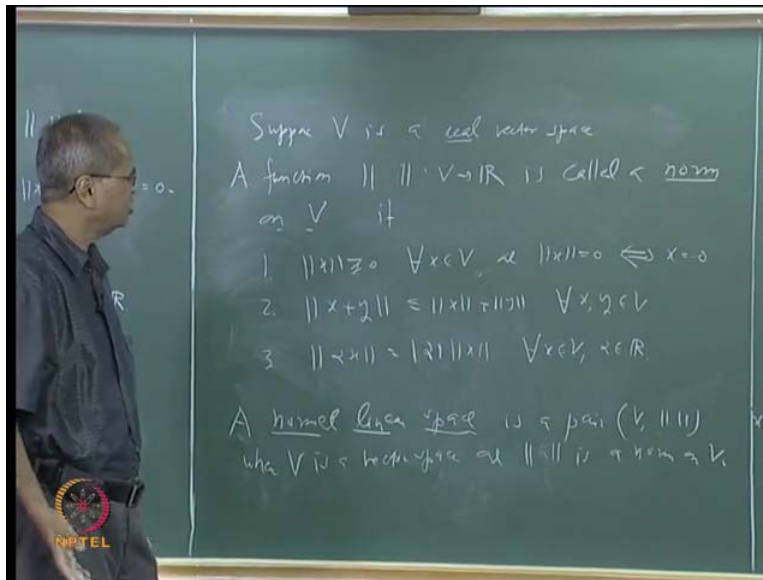 || ||
||x
= 0.
R
Suppose V is a real vector space
A function || || : V → ℝ is called a norm
on V if
1. ||x|| ≥ 0 ∀ x ∈ V, at ||x|| = 0 ⟺ x = 0
2. ||x + y|| ≤ ||x|| + ||y|| ∀ x, y ∈ V
3. ||αx|| = |α| ||x|| ∀ x ∈ V, α ∈ ℝ.
A normed linear space is a pair (V, || ||)
when V is a vector space at || || is a norm on V.
NPTEL